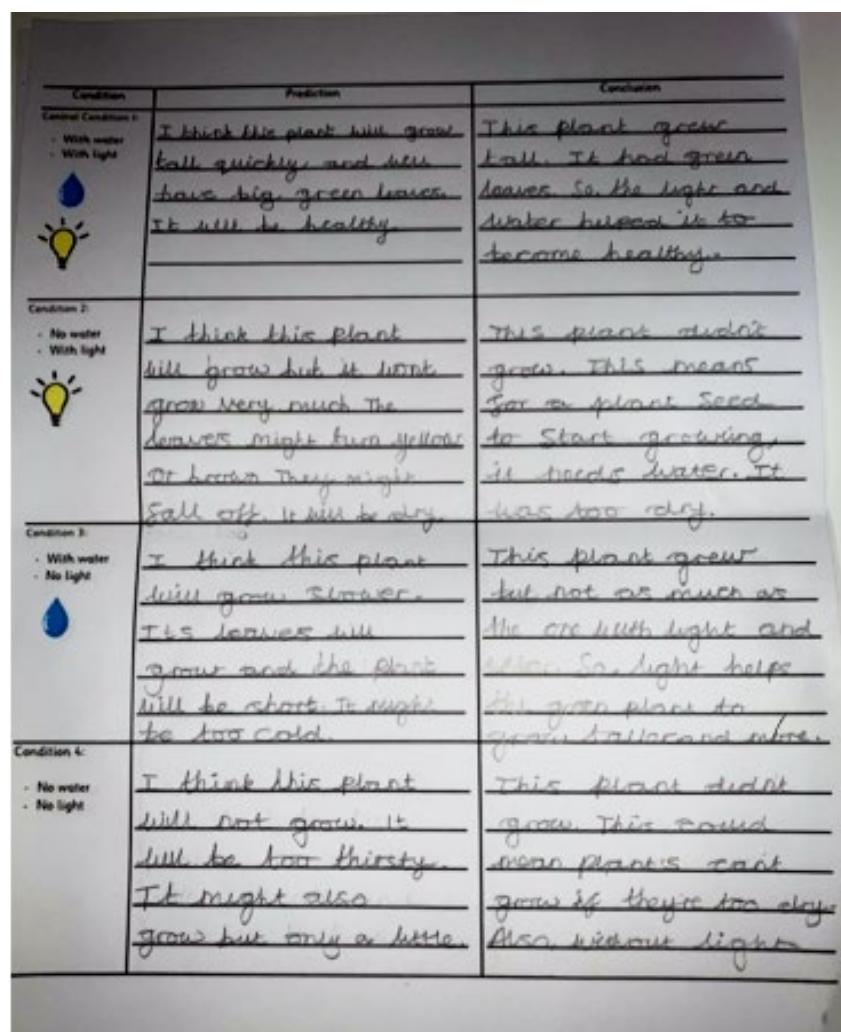 Condition
Prediction
Conclusion
Control Condition 1:
- With water
- With light
I think this plant will grow
tall quickly, and will
have big, green leaves.
It will be healthy.
This plant grew
tall. It had green
leaves. So, the light and
water helped it to
become healthy.
Condition 2:
- No water
- With light
I think this plant
will grow but it wont
grow very much The
leaves might turn yellow
or brown They might
fall off. It will be dry.
This plant didn't
grow. This means
for a plant seed
to start growing,
it needs water. It
was too dry.
Condition 3:
- With water
- No light
I think this plant
will grow slower.
Its leaves will
grow and the plant
will be short. It might
be too cold.
This plant grew
but not as much as
the one with light and
water. So, light helps
the plant to
grow taller and more.
Condition 4:
- No water
- No light
I think this plant
will not grow. It
will be too thirsty.
It might also
grow but only a little.
This plant didn't
grow. This could
mean plant's can't
grow if they're too dry.
Also, without light